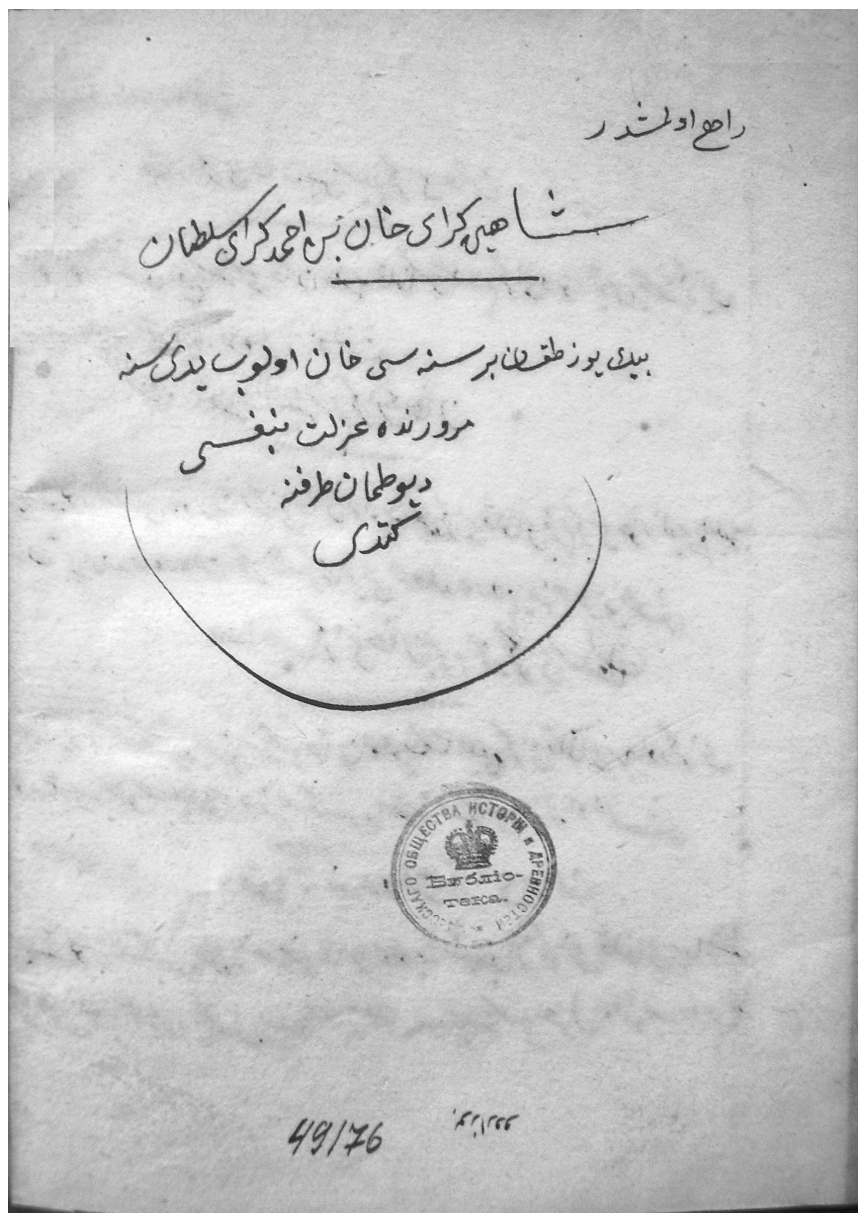 راجع اولمشدر
شاهین کرای خان بن احمد کرای سلطان
بیك یوز طقسان بر سنه سی خان اولوب یدی سنه
مرورنده عزلت بنفسی
دیو طمان طرفنه
کتدی
ОБЩЕСТВА ИСТОРІИ и ДРЕВНОСТЕЙ
Библіо-
тека.
49/76